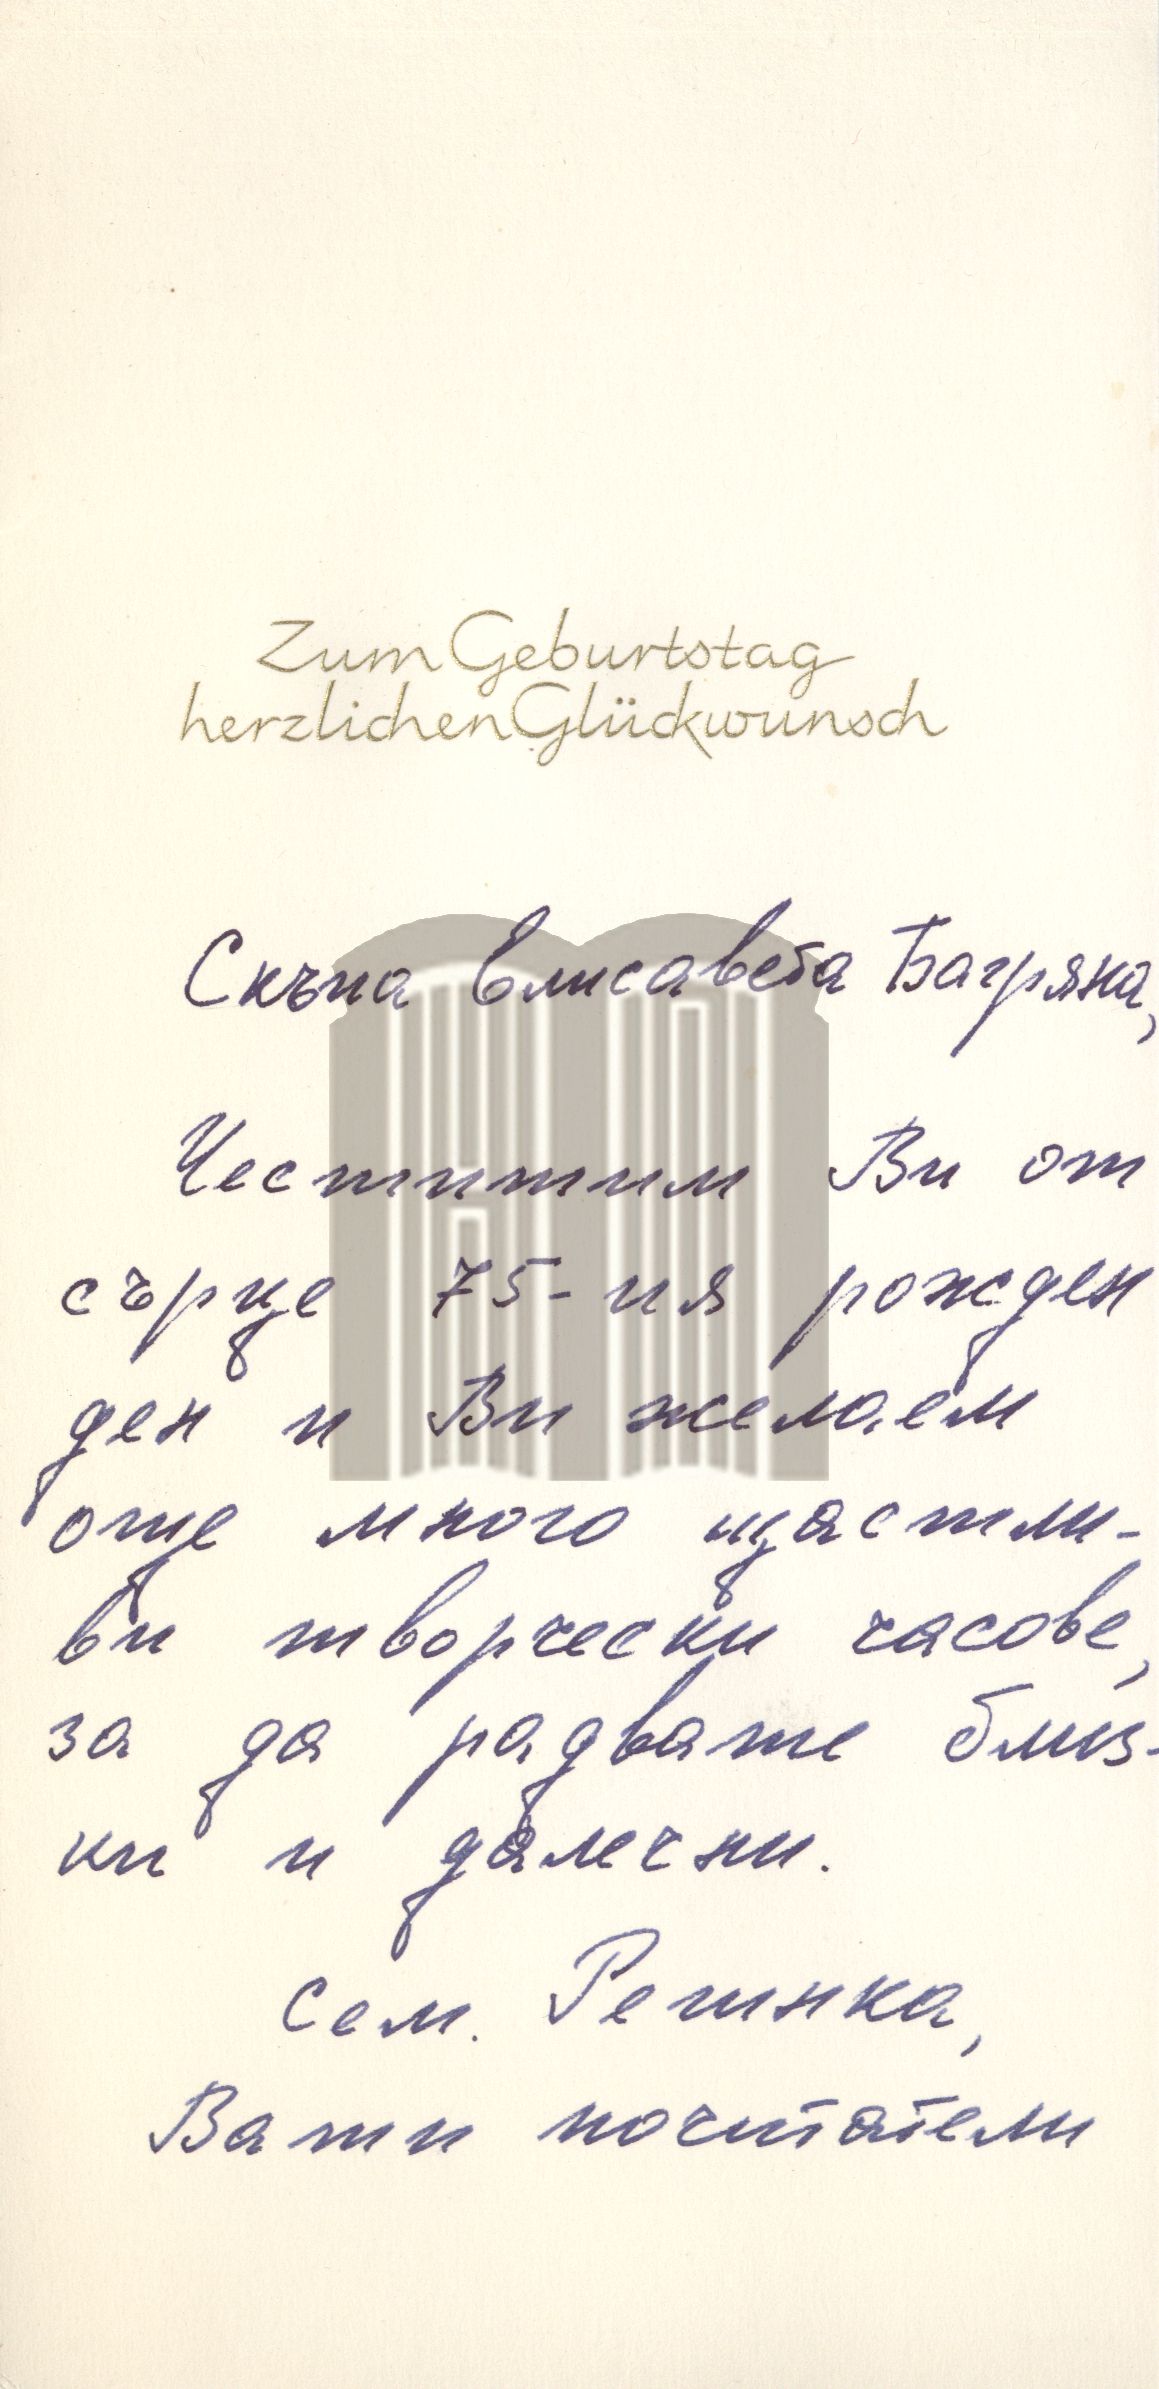 Zum Geburtstag
herzlichen Glückwunsch
Скъпа Елисавета Багряна,
Честитим Ви от
сърце 75-ия рожден
ден и Ви желаем
още много щастли-
ви творчески часове,
за да радвате близ-
ки и далечни.
Сем. Решнка,
Ваши почитатели